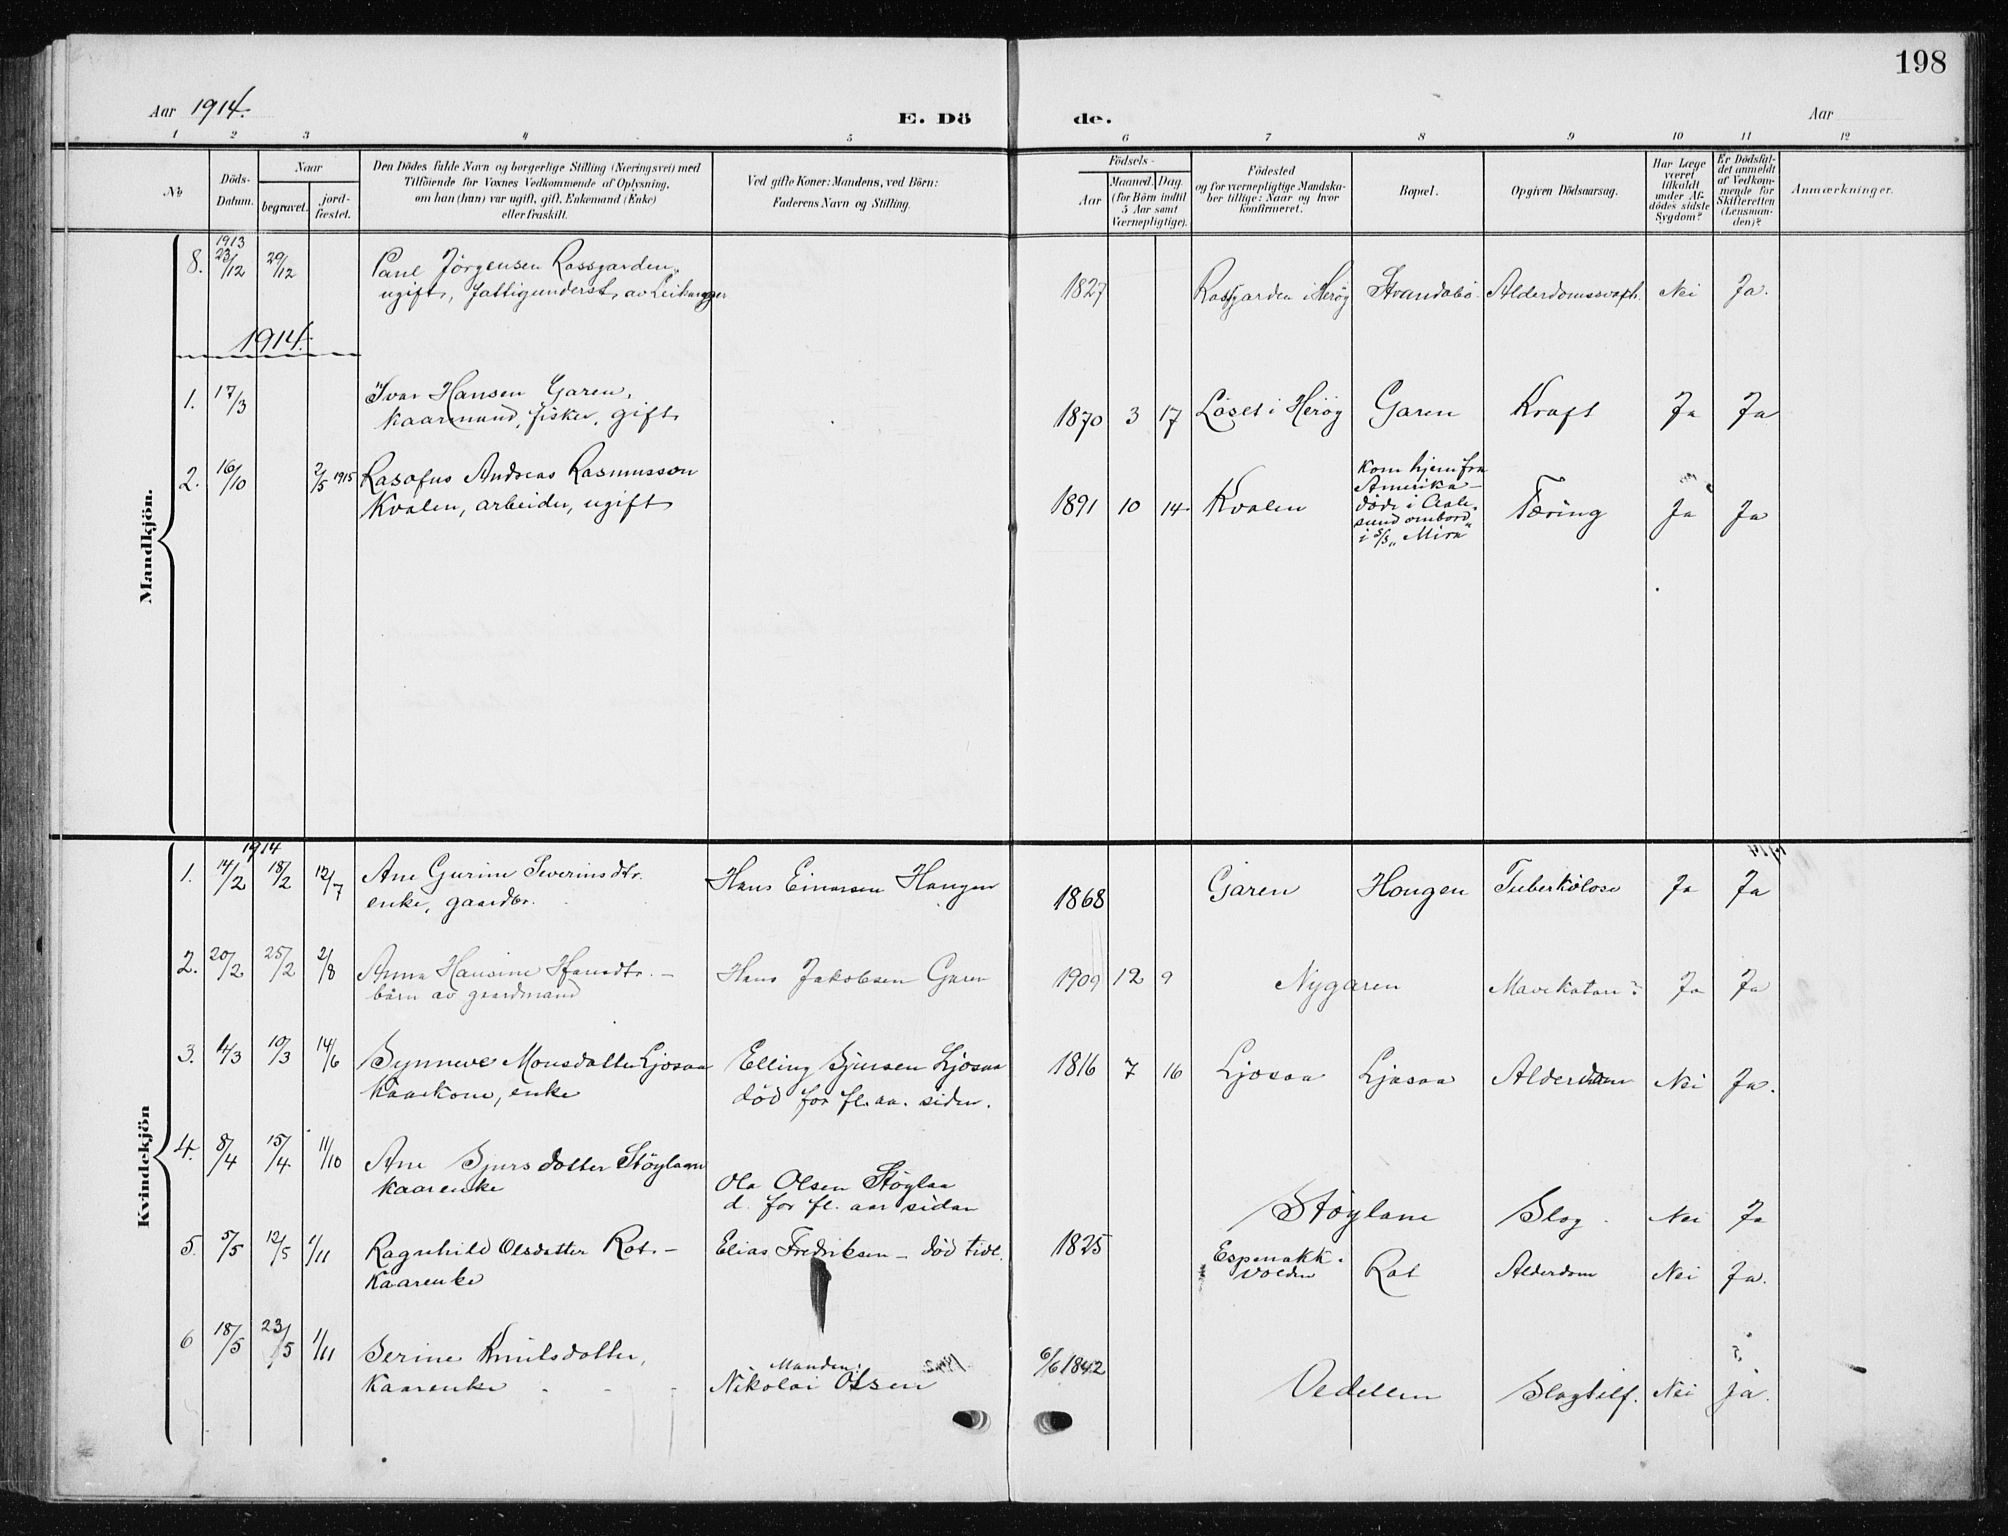 198
Aar 1914.
E. Dö de.
Aar
1 2 3 4 5 6 7 8 9 10 11 12
No
Döds-
Datum.
Naar
begravet.
jord-
fæstet.
Den Dödes fulde Navn og borgerlige Stilling (Næringsvei) med
Tilföiende for Voxnes Vedkommende af Oplysning,
om han (hun) var ugift, gift, Enkemand (Enke)
eller fraskilt.
Ved gifte Koner: Mandens, ved Börn:
Faderens Navn og Stilling.
Födsels-
Aar
Maaned. Dag.
(for Börn indtil
5 Aar samt
Værnepligtige).
Födested
og for værnepligtige Mandska-
ber tillige: Naar og hvor
konfirmeret.
Bopæl.
Opgiven Dödsaarsag.
Har Læge
været
tilkaldt
under Af-
dödes sidste
Sygdom?
Er Dödsfal-
det anmeldt
af Vedkom-
mende for
Skifteretten
(Lensman-
den)?
Anmærkninger.
Mandkjön.
1913
8. 23/12 29/12 Paul Jørgensen Rossgarden, 1827 Rossgarden i Herøy Strandabø Alderdomssvakh. Nei Ja.
ugift, fattigunderst. av Leikanger
1914.
1. 17/3 Ivar Hansen Garen, 1870 3 17 Løset i Herøy Garen Kræft Ja Ja
kaarmand, fisker, gift
2. 16/10 2/5 1915 Rasmus Rasmusson 1891 10 14 Kvalen Tæring Ja Ja
Kvalen, arbeider, ugift
kom hjem fra
Amerika –
døde i Aale-
sund ombord
i S/S „Mira"
Kvindekjön
1914
1. 14/2 18/2 12/7 Ane Gurine Severinsdtr. Hans Einarsen Haugen 1868 Garen Hougen Tuberkulose Ja Ja
enke, gaardbr.
2. 20/2 25/2 2/8 Anna Hansine Hansdtr. – Hans Jakobsen Garen 1909 12 9 Nygaren Mavekatarr Ja Ja
barn av gaardmand
3. 4/3 10/3 14/6 Synneve Monsdatter Ljosaa Elling Sjursen Ljosaa 1816 7 16 Ljosaa Ljosaa Alderdom Nei Ja.
Kaarkone, enke død for fl. aa. siden.
4. 8/4 15/4 11/10 Ane Sjursdotter Støylane
kaarenke Ola Olsen Støylaa
d. for fl. aar sidan
Støylane Slag. Nei Ja
5. 5/5 12/5 1/11 Ragnhild Olsdatter Rot. – Elias Fredriksen – død tidl. 1825 Espenakk- Rot Alderdom Nei Ja.
Kaarenke volden
6 18/5 23/5 1/11 Serine Knutsdatter, 6/6 1842 Vedeldem Slagtilf. Nei ja.
Kaarenke Manden:
Nikolai Olsen